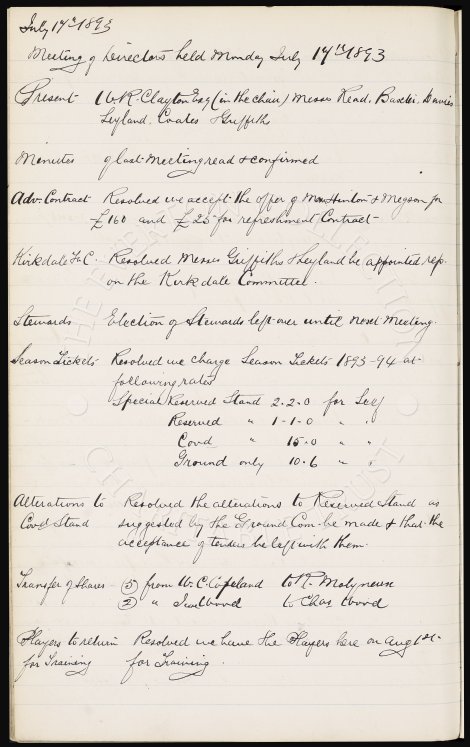 July 17th 1893
Meeting of Directors held Monday July 17th 1893
Present W. R. Clayton Esq (in the chair) Messrs Read, Baxter, Davies
Leyland, Coates & Griffiths
Minutes of last Meeting read & confirmed
Adv. Contract Resolved we accept the offer of Hinton & Megson for
£160 and £25 for refreshment Contract
Kirkdale F&C. Resolved Messrs Griffiths & Leyland be appointed rep.
on the Kirkdale Committee.
Stewards Election of Stewards left over until next Meeting.
Season Tickets Resolved we charge Season Tickets 1893-94 at
following rates
Special Reserved Stand 2-2-0 for Self
Reserved " 1-1-0 " "
Covd " 15-0 " "
Ground only 10-6 " "
Alterations to Resolved the alterations to Reserved Stand as
Covd Stand suggested by the Ground Com. be made & that the
acceptance of tenders be left with them.
Transfer of Shares - 5 from W. C. Copeland to R. Molyneux
2 " to Chas Wood
Players to return Resolved we have the Players here on Aug 1st
for Training for Training.